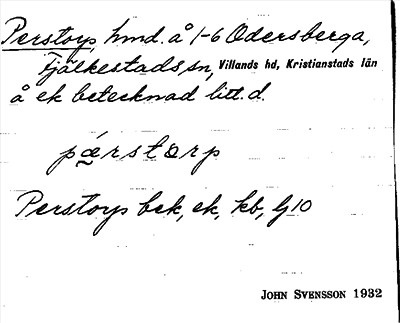 Perstorp, hmd. å 1-6 Odersberga,
Fjälkestads sn, Villands hd, Kristianstads län
å ek betecknad litt. d.
pæ̀rstɔrp
Perstorp bek, ek, kb, Gj 10
JOHN SVENSSON 1932